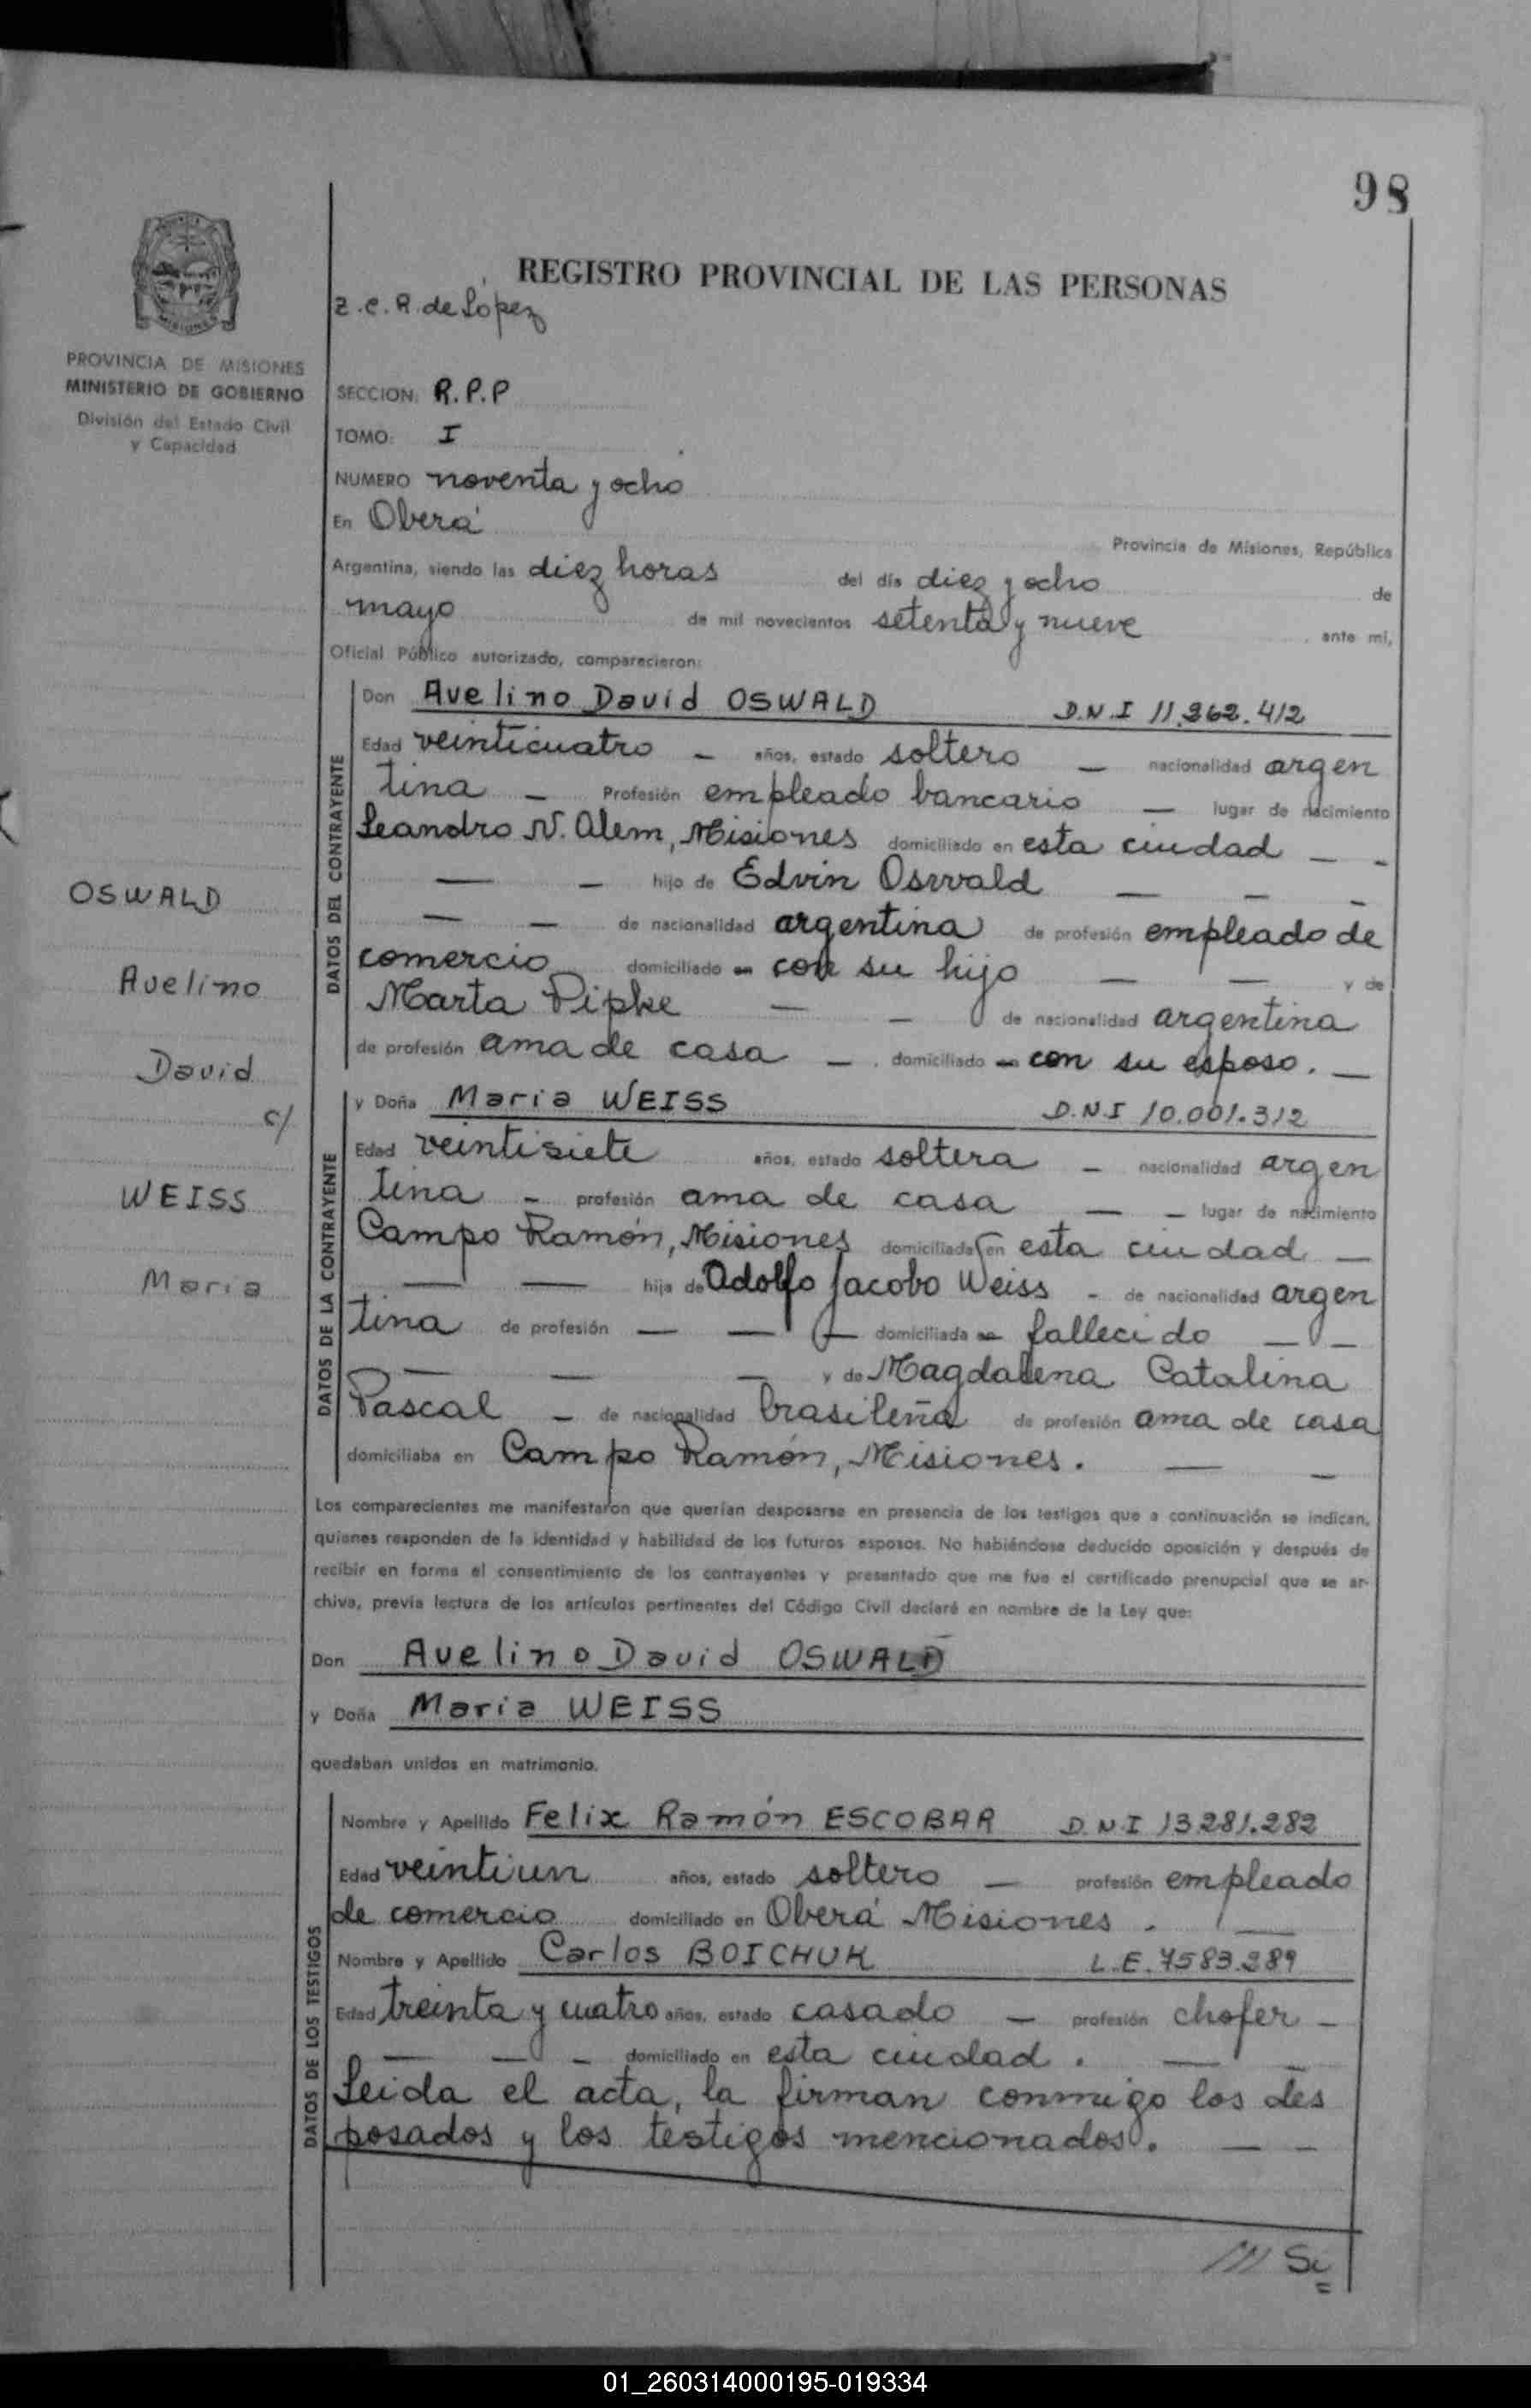 98
REGISTRO PROVINCIAL DE LAS PERSONAS
Z.C.R. de López
MISIONES
PROVINCIA DE MISIONES
MINISTERIO DE GOBIERNO
División del Estado Civil
y Capacidad
SECCION: R.P.P
TOMO: I
NUMERO noventa y ocho
En Oberá
Provincia de Misiones, República
Argentina, siendo las diez horas del día diez y ocho de
mayo de mil novecientos setenta y nueve ante mí,
Oficial Público autorizado, comparecieron:
DATOS DEL CONTRAYENTE
Don Avelino David OSWALD D.N.I 11.362.412
Edad veinticuatro — años, estado soltero — nacionalidad argen
tina — Profesión empleado bancario — lugar de nacimiento
Leandro N. Alem, Misiones domiciliado en esta ciudad — -
— — hijo de Edvin Oswald — — -
— — de nacionalidad argentina de profesión empleado de
comercio domiciliado en con su hijo — — y de
Marta Pipke — — de nacionalidad argentina
de profesión ama de casa — . domiciliado en con su esposo. —
OSWALD
Avelino
David
c/
WEISS
Maria
DATOS DE LA CONTRAYENTE
y Doña Maria WEISS D.N.I 10.001.312
Edad veintisiete años, estado soltera — nacionalidad argen
tina - profesión ama de casa — — lugar de nacimiento
Campo Ramón, Misiones domiciliada en esta ciudad —
— — hija de Adolfo Jacobo Weiss - de nacionalidad argen
tina de profesión — — — domiciliada en fallecido — —
— — — y de Magdalena Catalina
Pascal — de nacionalidad brasileña de profesión ama de casa
domiciliaba en Campo Ramón, Misiones. — —
Los comparecientes me manifestaron que querían desposarse en presencia de los testigos que a continuación se indican,
quienes responden de la identidad y habilidad de los futuros esposos. No habiéndose deducido oposición y después de
recibir en forma el consentimiento de los contrayentes y presentado que me fue el certificado prenupcial que se ar-
chiva, previa lectura de los artículos pertinentes del Código Civil declaré en nombre de la Ley que:
Don Avelino David OSWALD
y Doña Maria WEISS
quedaban unidos en matrimonio.
DATOS DE LOS TESTIGOS
Nombre y Apellido Felix Ramón ESCOBAR D.N.I 13.281.282
Edad veintiun años, estado soltero — profesión empleado
de comercio domiciliado en Oberá Misiones . —
Nombre y Apellido Carlos BOICHUK L.E. 7583.289
Edad treinta y cuatro años, estado casado — profesión chofer —
— — - domiciliado en esta ciudad . — —
Leida el acta, la firman conmigo los des
posados y los testigos mencionados. — —
/// Si
01_260314000195-019334